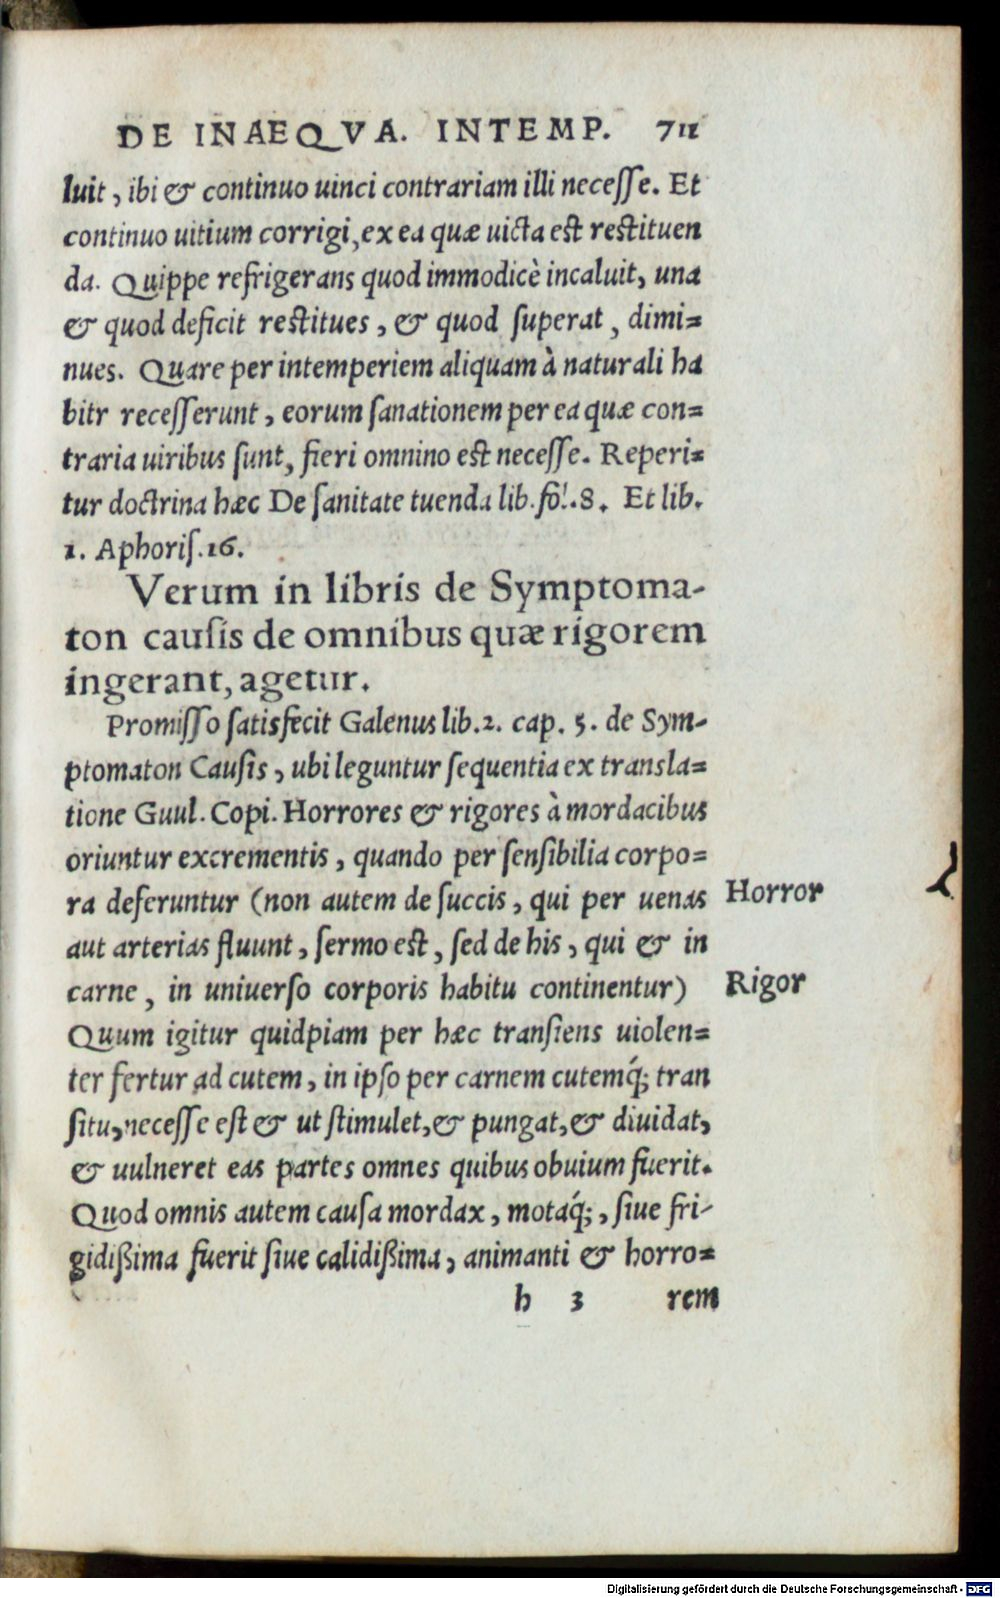 DE INAEQVA. INTEMP. 711
luit, ibi & continuo uinci contrariam illi necesse. Et
continuo uitium corrigi, ex ea quæ uicta est restituen
da. Quippe refrigerans quod immodicè incaluit, una
& quod deficit restitues, & quod superat, dimi=
nues. Quare per intemperiem aliquam à naturali ha
bitr recesserunt, eorum sanationem per ea quæ con=
traria uiribus sunt, fieri omnino est necesse. Reperi=
tur doctrina hæc De sanitate tuenda lib. fo!. 8. Et lib.
1. Aphoris. 16.
Verum in libris de Symptoma-
ton causis de omnibus quæ rigorem
ingerant, agetur.
Promisso satisfecit Galenus lib. 2. cap. 5. de Sym-
ptomaton Causis, ubi leguntur sequentia ex transla=
tione Guul. Copi. Horrores & rigores à mordacibus
oriuntur excrementis, quando per sensibilia corpo=
ra deferuntur (non autem de succis, qui per uenas
Horror
aut arterias fluunt, sermo est, sed de his, qui & in
carne, in uniuerso corporis habitu continentur)
Rigor
Quum igitur quidpiam per hæc transiens uiolen=
ter fertur ad cutem, in ipso per carnem cutemq́; tran
situ, necesse est & ut stimulet, & pungat, & diuidat,
& uulneret eas partes omnes quibus obuium fuerit.
Quod omnis autem causa mordax, motaq́;, siue fri-
gidißima fuerit siue calidißima, animanti & horro=
h 3 rem
Digitalisierung gefördert durch die Deutsche Forschungsgemeinschaft - DFG